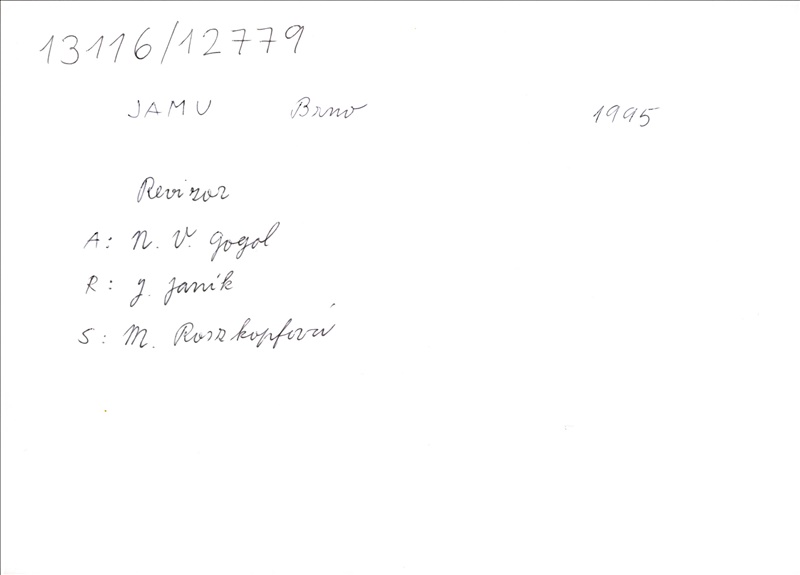 13116/12779
JAMU Brno 1995
Revizor
A: N. V. Gogol
R: J. Janík
S: M. Roszkopfová